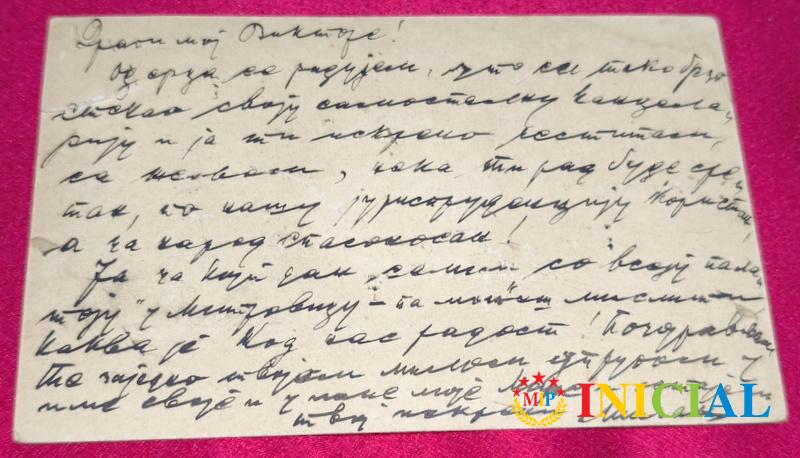 Драги мој Викторе!
Од срца се радујем, што си тако брзо
стекао своју самосталну канцела-
рију и ја ти искрено честитам,
са жељом, нека ти рад буде срећ
тан, по нашу јуриспруденцију користан,
а за народ спасоносан!
Ја за који дан селим со всеју
у Митровицу – па можеш мислити
каква је код нас радост! Поздрављам
Те заједно твојом милом супругом у
име своје и у име моје
твој искрени Милан
MIP INICIAL